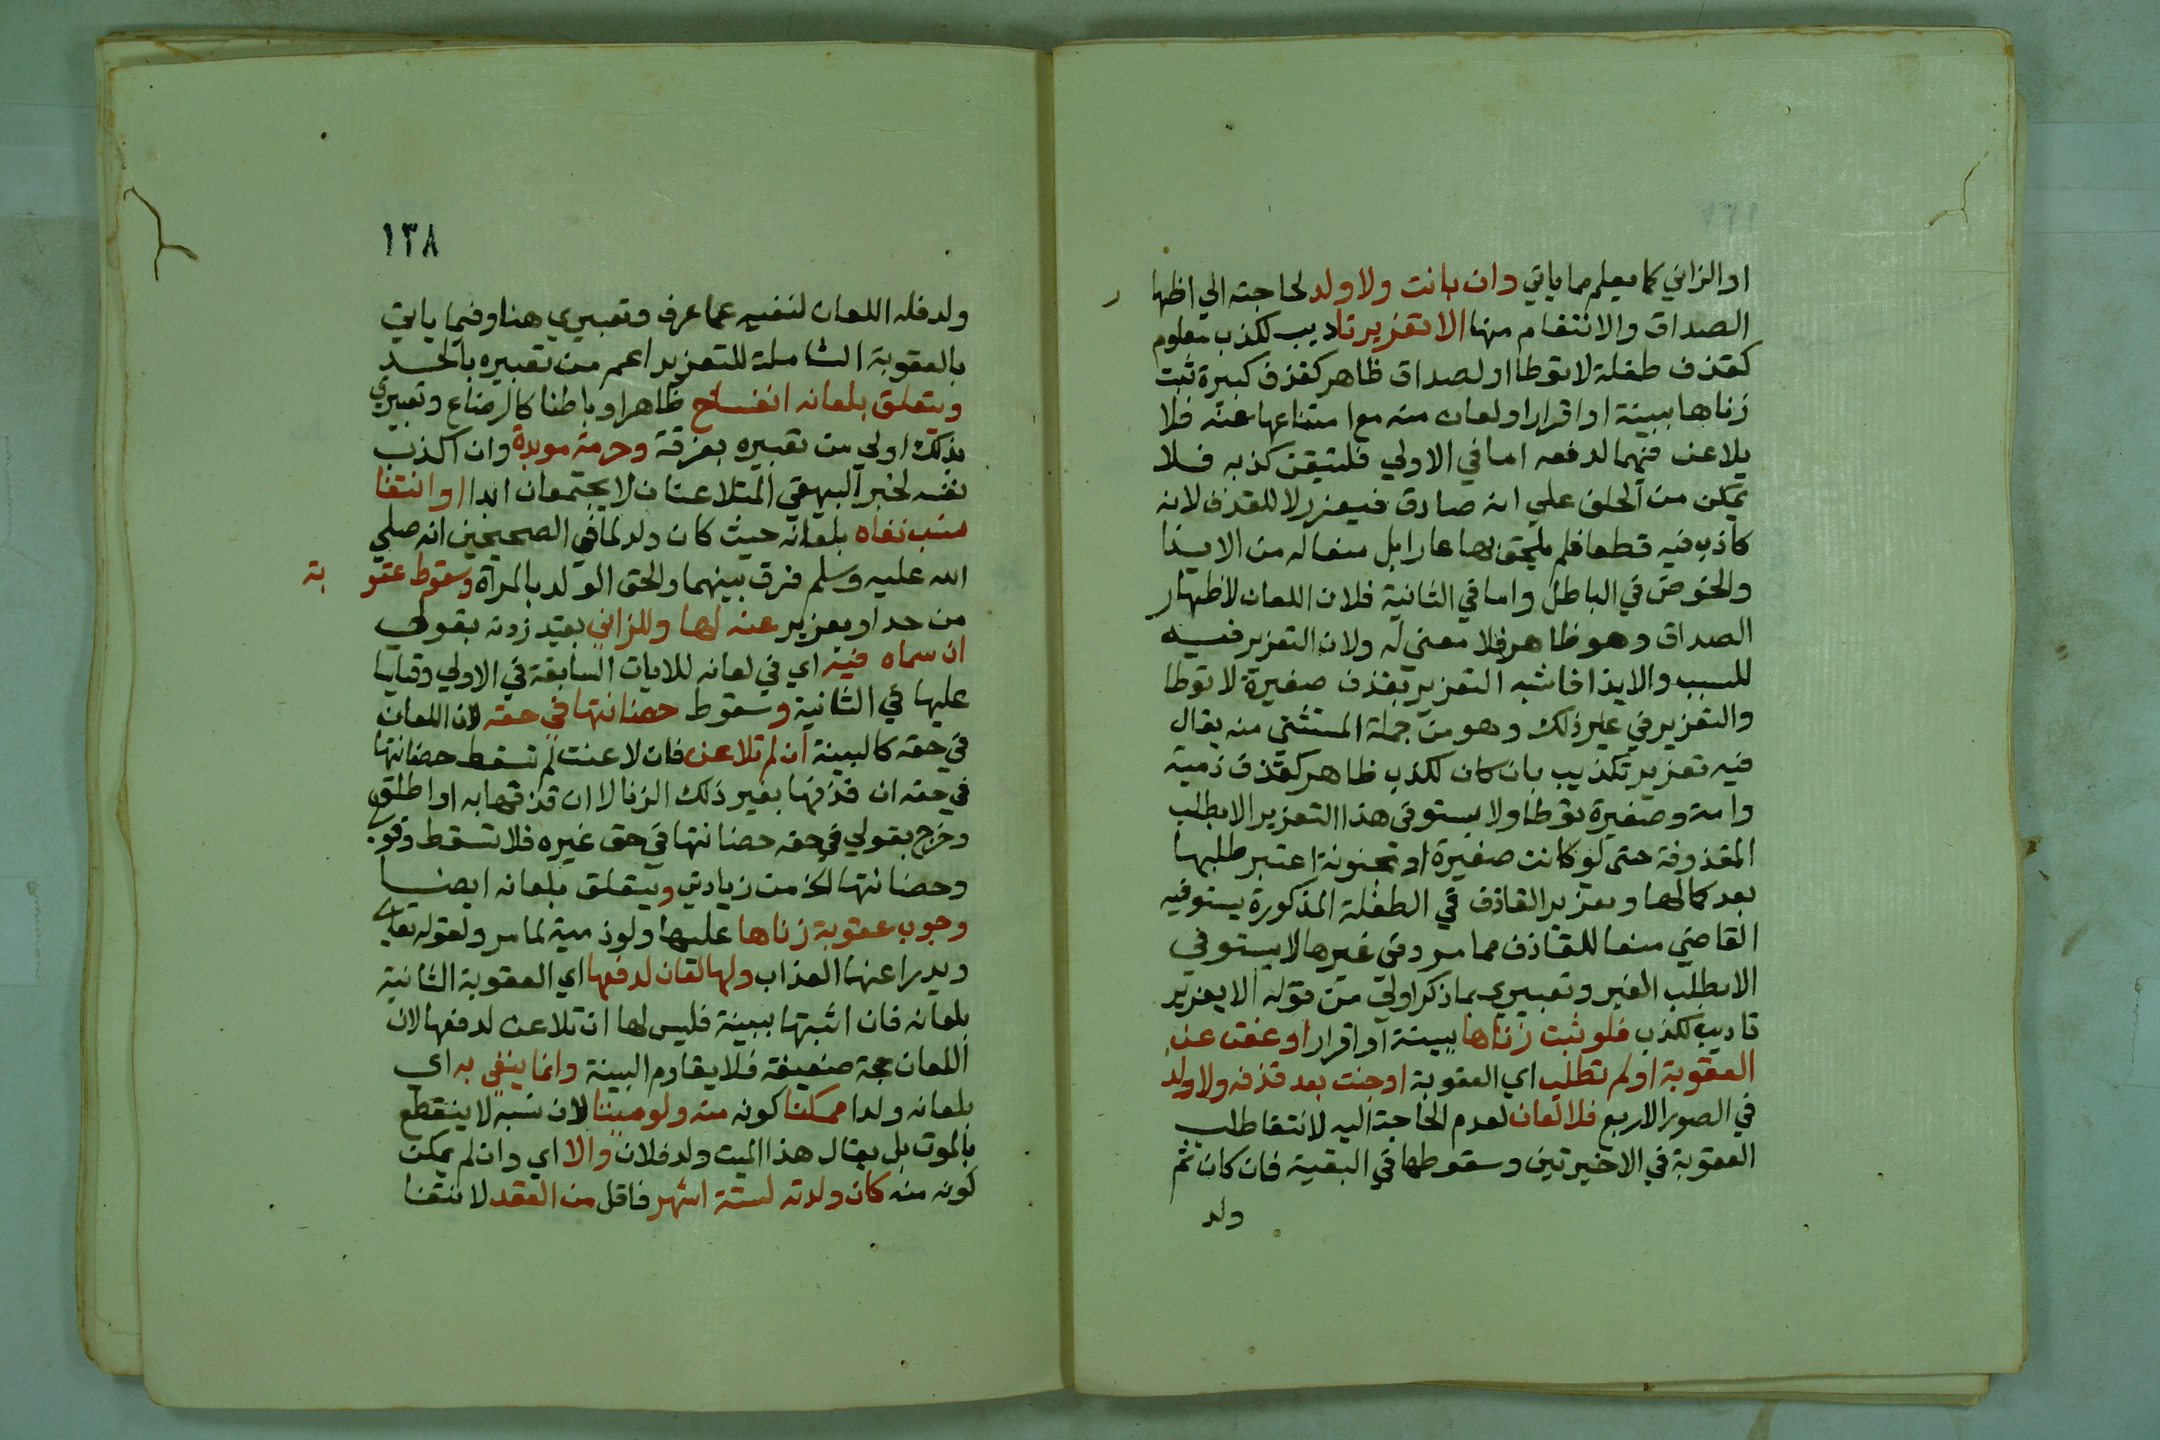 او الزاني كما يعلم مما ياتي وان بانت ولا ولد لحاجته الي اظها
ر
الصداق والانتقام منها الا تعزير تاديب لكذب معلوم
كقذف طفلة لا توطا او لصداق ظاهر كقذف كبيرة ثبت
زناها ببينة او اقرار او لعان منه مع امتناعها عنه فلا
يلاعن فيهما لدفعه اما في الاولي فلتيقن كذبه فلا
يمكن من الحلف علي انه صادق فيعزر لا للقذف لانه
كاذب فيه قطعا فلم يلحق بها عارا بل منعا له من الايذا
والخوض في الباطل واما في الثانية فلان اللعان لاظهار
الصداق وهو ظاهر فلا معني له ولان التعزير فيه
للسبب والايذا فاشبه التعزير بقذف صغيرة لا توطا
والتعزير في غير ذلك وهو من جملة المستثني منه يقال
فيه تعزير تكذيب بان كان لكذب ظاهر كقذف ذمية
وامة وصغيرة توطا ولا يستوفي هذا التعزير الا بطلب
المقذوفة حتي لو كانت صغيرة او مجنونة اعتبر طلبها
بعد كمالها وتعزير القاذف في الطفلة المذكورة يستوفيه
القاضي منعا للقاذف مما مر وفي غيرها لا يستوفي
الا بطلب الغير وتعبيري بما ذكر اولي من قوله الا تعزير
تاديب لكذب فلو ثبت زناها ببينة او اقرار او عفت عن
العقوبة او لم تطلب اي العقوبة او جنت بعد قذفه ولا ولد
في الصور الاربع فلا لعان لعدم الحاجة اليه لانتفا طلب
العقوبة في الاخيرتين وسقوطها في البقية فان كان ثم
ولد
١٣٨
ولد فله اللعان لنفيه عما عرف وتعبيري هنا وفيما ياتي
بالعقوبة الشاملة للتعزير اعم من تعبيره بالحد
ويتعلق بلعانه انفساخ ظاهرا وباطنا كالرضاع وتعبيري
بذلك اولي من تعبيره بفرقة وحرمة موبدة وان اكذب
نفسه لخبر البيهقي المتلاعنان لا يجتمعان ابدا وانتفا
نسب نفاه بلعانه حيث كان ولد لما في الصحيحين انه صلي
الله عليه وسلم فرق بينهما والحق الولد بالمراة وسقوط عقو
بة
من حد او تعزير عنه لها وللزاني بقيد زدته بقولي
ان سماه فيه اي في لعانه للايات السابقة في الاولي وقياسا
عليها في الثانية وسقوط حضانتها في حقه لان اللعان
في حقه كالبينة ان لم تلاعن فان لاعنت لم تسقط حضانتها
في حقه ان قذفها بغير ذلك الزنا لا ان قذفها به او اطلق
وخرج بقولي في حقه حضانتها في حق غيره فلا تسقط وقولي
وحضانتها الخ من زيادتي ويتعلق بلعانه ايضا
وجوب عقوبة زناها عليها ولو ذمية لما مر ولقوله تعالي
ويدرا عنها العذاب ولها لعان لدفعها اي العقوبة الثانية
بلعانه فان اثبتها ببينة فليس لها ان تلاعن لدفعها لان
اللعان حجة ضعيفة فلا يقاوم البينة وانما ينفي به اي
بلعانه ولدا ممكنا كونه منه ولو ميتا لان نسبه لا ينقطع
بالموت بل يقال هذا الميت ولد فلان والا اي وان لم يمكن
كونه منه كان ولدته لستة اشهر فاقل من العقد لانتفا